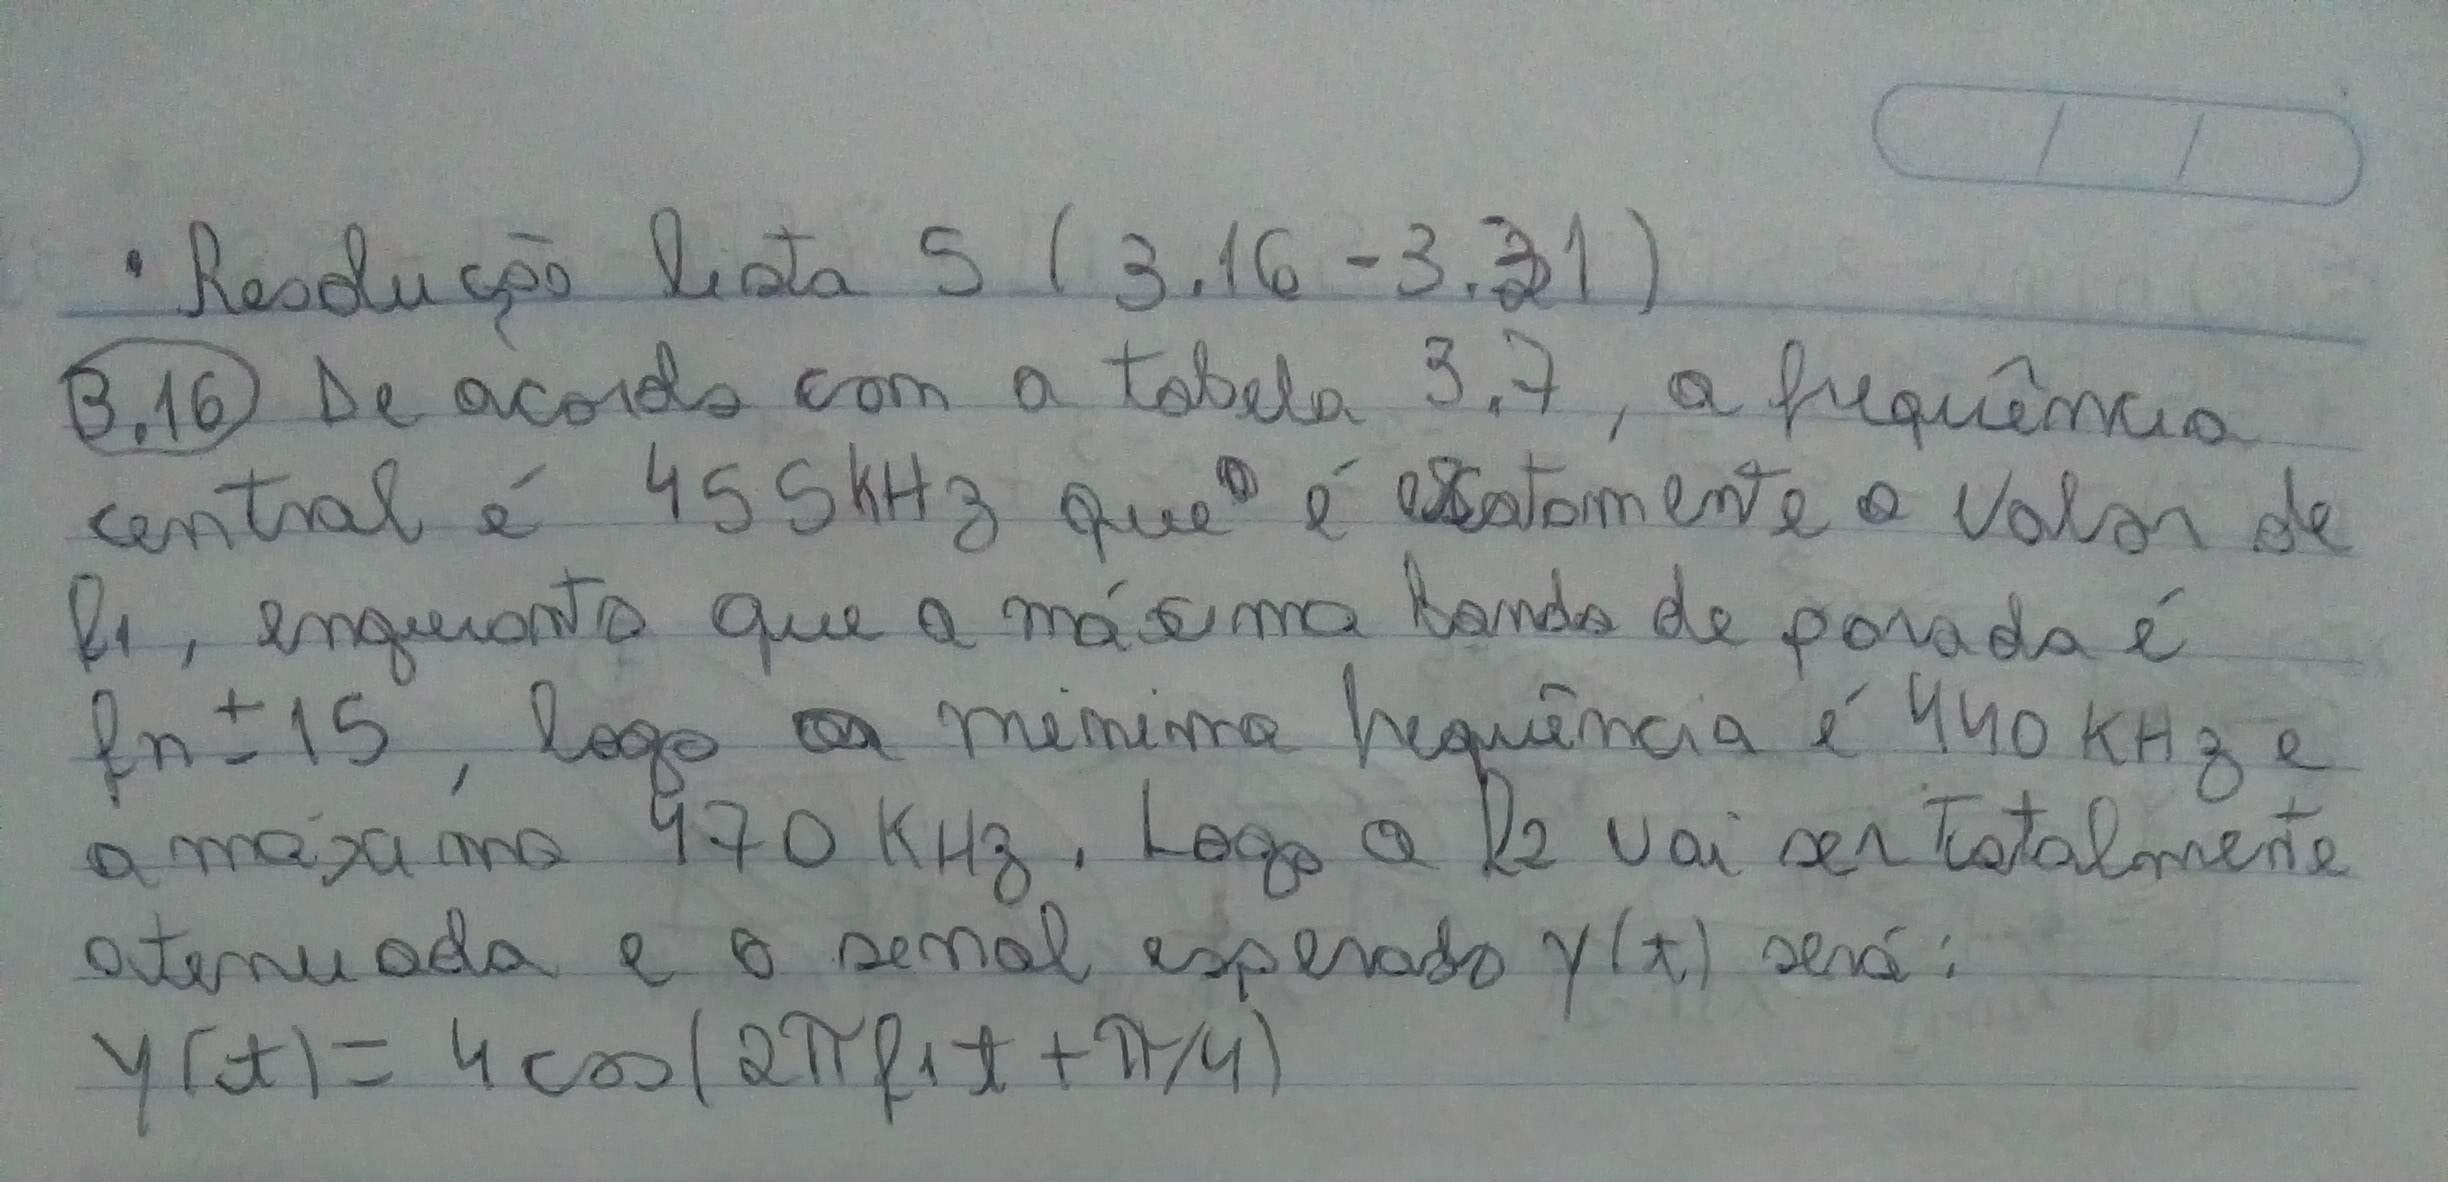 • Resolução lista 5 (3.16 - 3.21)
3.16 De acordo com a tabela 3.7, a frequência
central é 455KHz que é exatamente o valor de
f1, enquanto que a máxima banda de parada é
fn ± 15, logo a mínima frequência é 440 KHz e
a máxima 470 KHz. Logo a f2 vai ser totalmente
atenuada e o sinal esperado y(t) será:
y(t) = 4 cos(2πf1t + π/4)